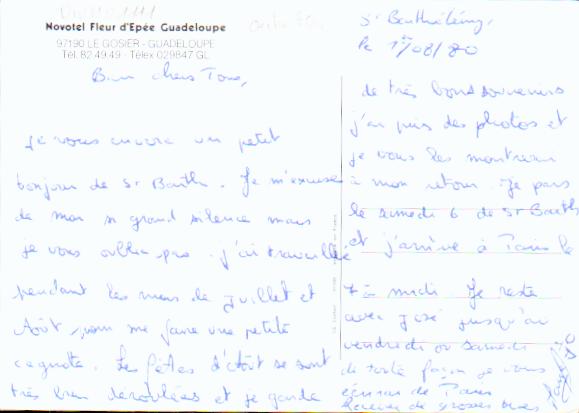 Novotel Fleur d'Epée Guadeloupe
97190 LE GOSIER - GUADELOUPE
Tél. 82.49.49 - Télex 029847 GL
St Barthélémy,
le 1er/08/80
Bien chers Tous,
Je vous envoie un petit
bonjour de St Barth. Je m'excuse
de mon si grand silence mais
je vous oublie pas. j'ai travaillé
pendant les mois de Juillet et
Août, pour me faire une petite
cagnote. Les fêtes d'Août se sont
très bien déroulées et je garde
de très bons souvenirs
j'ai pris des photos et
je vous les montrerai
à mon retour. Je pars
le samedi 6 de St Barth
et j'arrive à Paris le
7 à midi. Je reste
avec José jusqu'au
vendredi ou samedi
de toute façon je vous
écrirai de Paris
Recevez de grosses bises